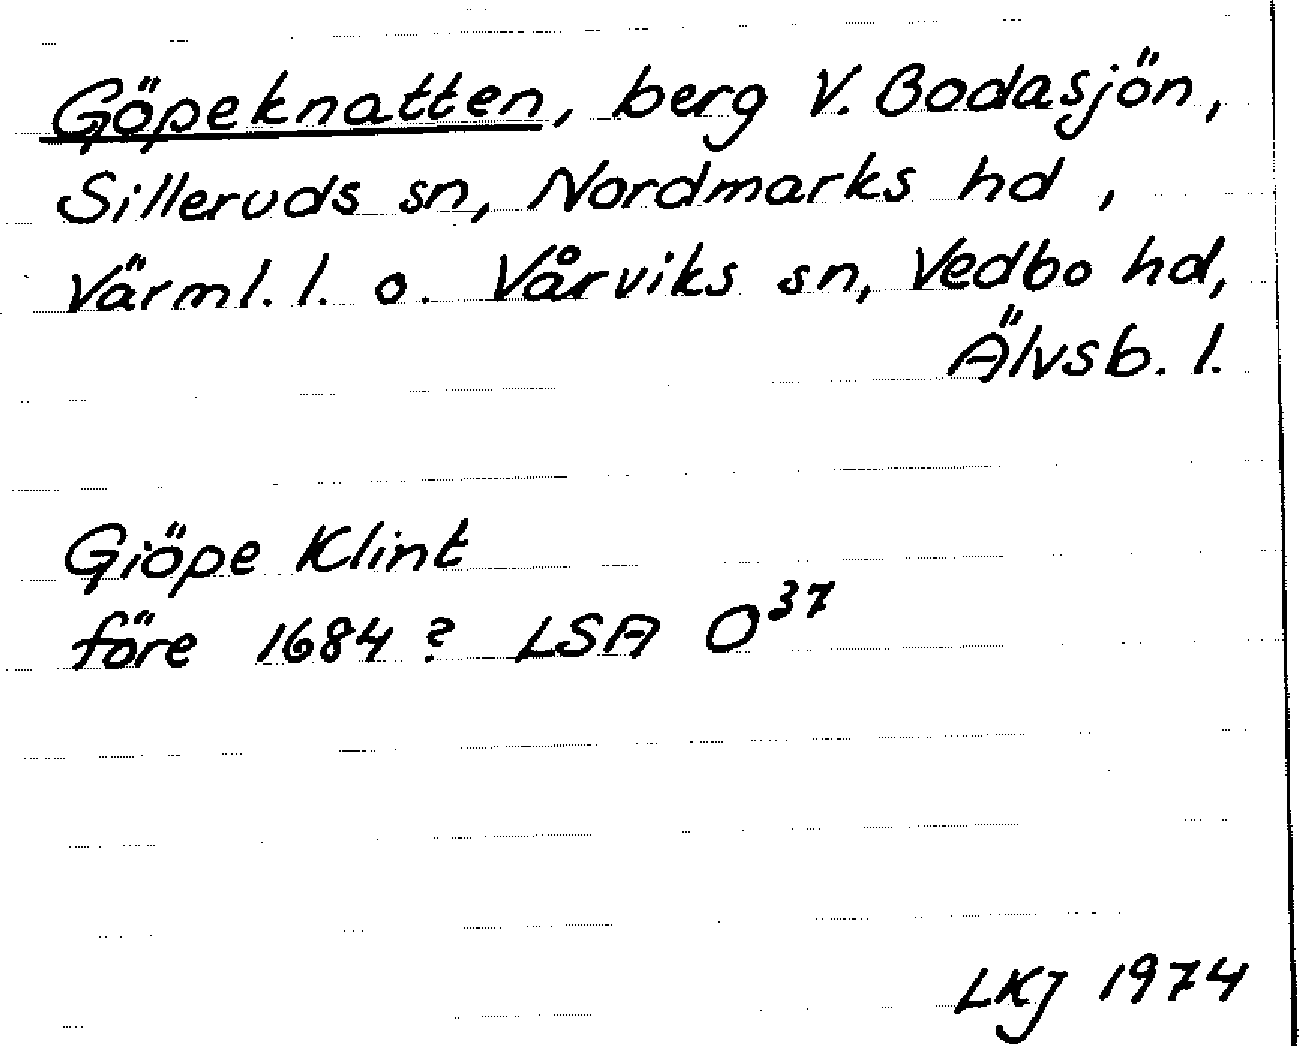 Göpeknatten, berg V. Bodasjön,
Silleruds sn, Nordmarks hd,
Värml. l. o. Vårviks sn, Vedbo hd,
Älvsb. l.
Giöpe Klint
före 1684? LSA O³⁷
LKJ 1974